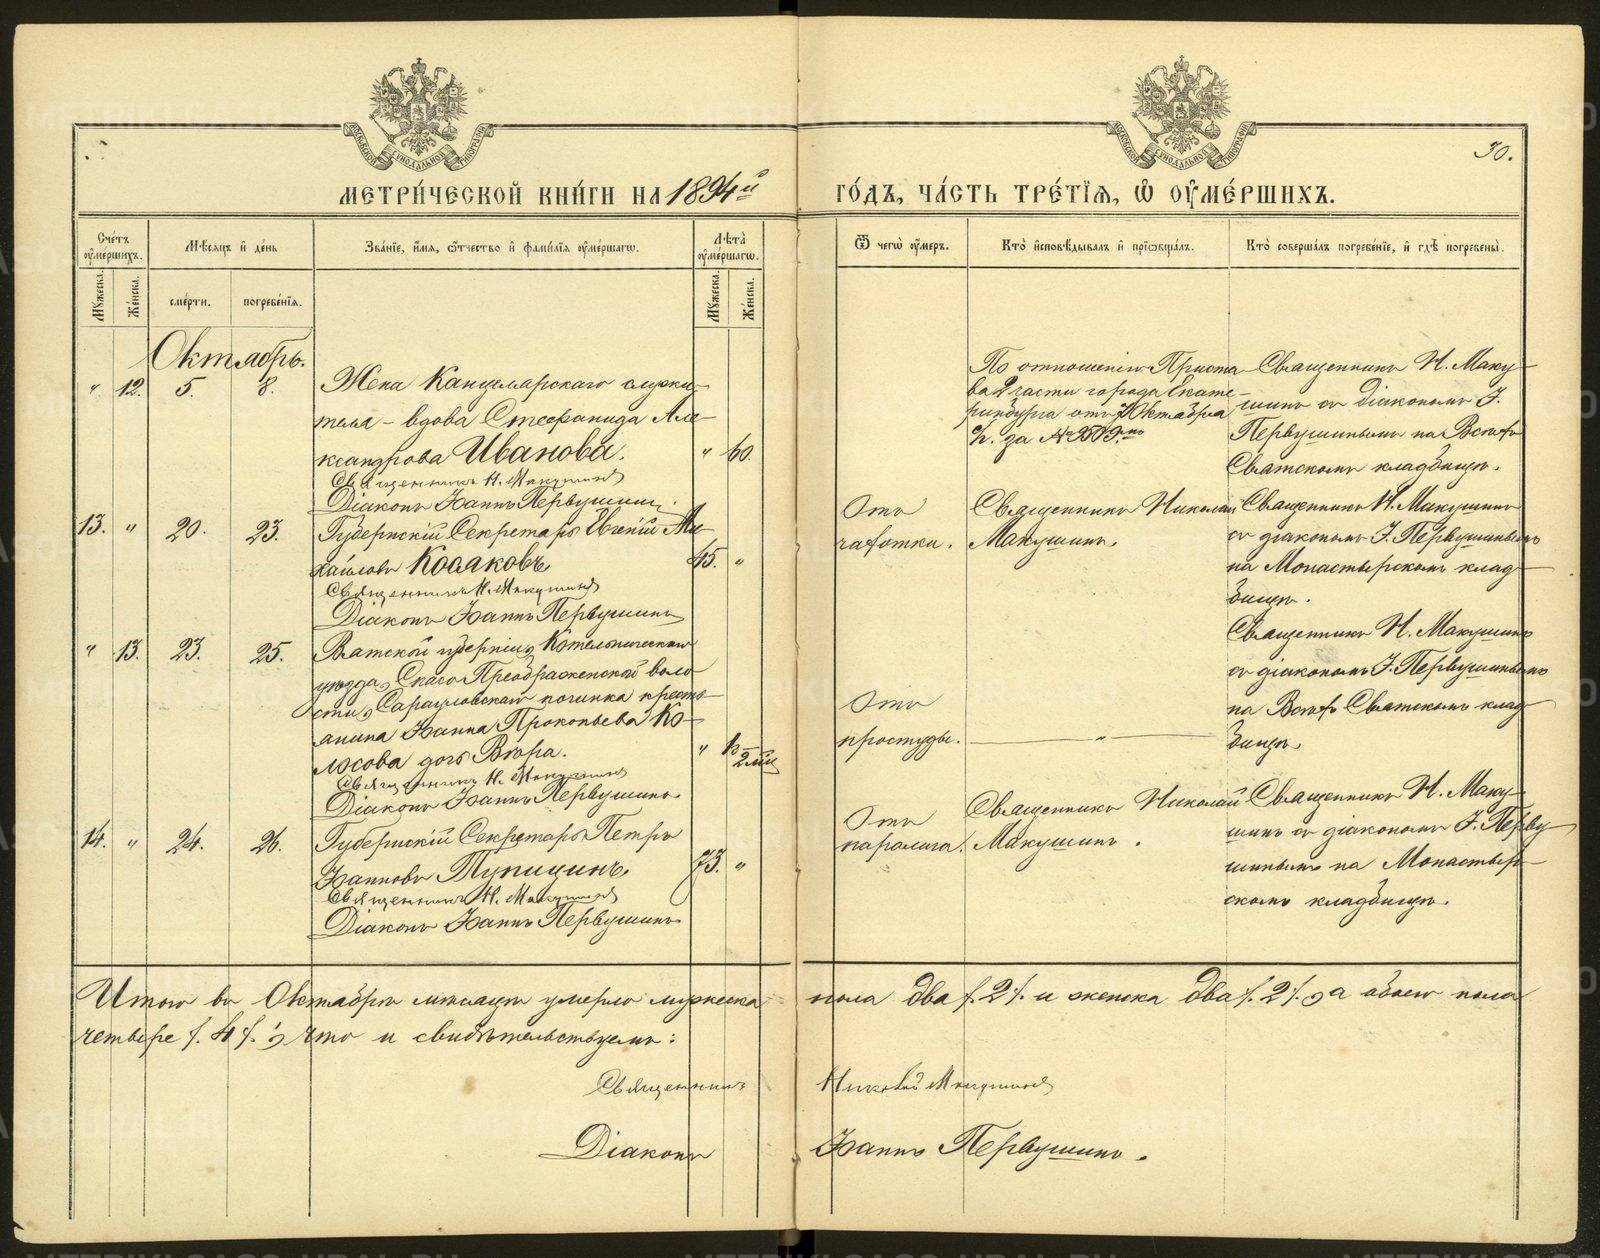 МЕТРИ́ЧЕСКОЙ КНИ́ГИ НА 1894й ГО́ДЪ, ЧА́СТЬ ТРЕ́ТІѦ, Ѡ҆ ОУ҆МЕ́РШИХЪ.
30.
Сче́тъ оу҆ме́ршихъ.
Мѣ́сяцъ и҆ де́нь
Зва́нїе, и҆́мя, ѻ҆́тчество и҆ фами́лїя оу҆ме́ршагѡ.
Лѣ́та оу҆ме́ршагѡ.
Ѿ чегѡ̀ оу҆́меръ.
Кто̀ и҆сповѣ́дывалъ и҆ прїѡбща́лъ.
Кто̀ соверша́лъ погребе́нїе, и҆ гдѣ̀ погребены̀.
Мꙋ́жеска. Же́нска.
сме́рти. погребе́нїя.
Мꙋ́жеска. Же́нска.
Октябрь.
" 12. 5. 8.
Жена Канцелярскаго служи-
теля – вдова Стефанида Але-
ксандрова Иванова.
" 60.
Священникъ Н. Макушинъ
Діаконъ Іоаннъ Первушинъ.
По отношенію Приста-
ва 2 части города Екате-
ринбурга отъ 7 Октября
с/г. за №
Священникъ Н. Маку-
шинъ съ діакономъ І.
Первушинымъ на Всѣхъ
Святскомъ кладбищѣ.
13. " 20. 23.
Губернскій Секретарь Евгеній Ми-
хайловъ Косяковъ
45. "
Священникъ Н. Макушинъ
Діаконъ Іоаннъ Первушинъ
Отъ
чахотки.
Священникъ Николай
Макушинъ.
Священникъ Н. Макушинъ
съ діакономъ І. Первушинымъ
на Монастырскомъ клад-
бищѣ.
" 13. 23. 25.
Вятской губерніи, Котельническаго
уѣзда, Спасо Преображенской воло-
сти, починка кресть-
янина Іоанна Прокопьева Ко-
лосова дочь Вѣра.
"
Священникъ Н. Макушинъ
Діаконъ Іоаннъ Первушинъ.
Отъ
простуды.
"
Священникъ Н. Макушинъ
съ діакономъ І. Первушинымъ
на Всѣхъ Святскомъ клад-
бищѣ.
14. " 24. 26.
Губернскій Секретарь Петръ
Іоанновъ Тупицинъ.
73. "
Священникъ Н. Макушинъ
Діаконъ Іоаннъ Первушинъ
Отъ
паралича.
Священникъ Николай
Макушинъ.
Священникъ Н. Маку-
шинъ съ діакономъ І. Перву-
шинымъ на Монастыр-
скомъ кладбищѣ.
Итого въ Октябрѣ мѣсяцѣ умерло мужеска пола два /. 2 /. и женска два /. 2 /., а обоего пола
четверо /. 4 /., что и свидѣтельствуемъ:
Священникъ Николай Макушинъ
Діаконъ Іоаннъ Первушинъ.